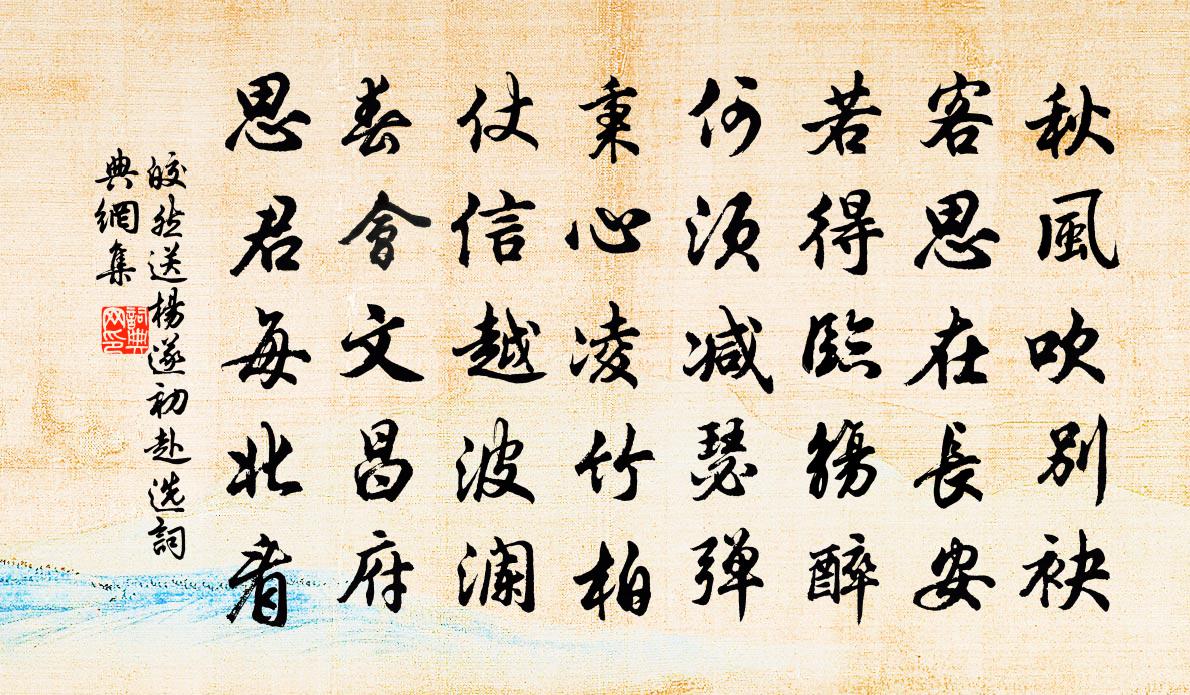 秋風吹別袂
客思在長安
若得臨觴醉
何須减瑟彈
秉心凌竹柏
仗信越波瀾
春會文昌府
思君每北看
皎然送楊遂初赴选詞
典網集
詞典网印